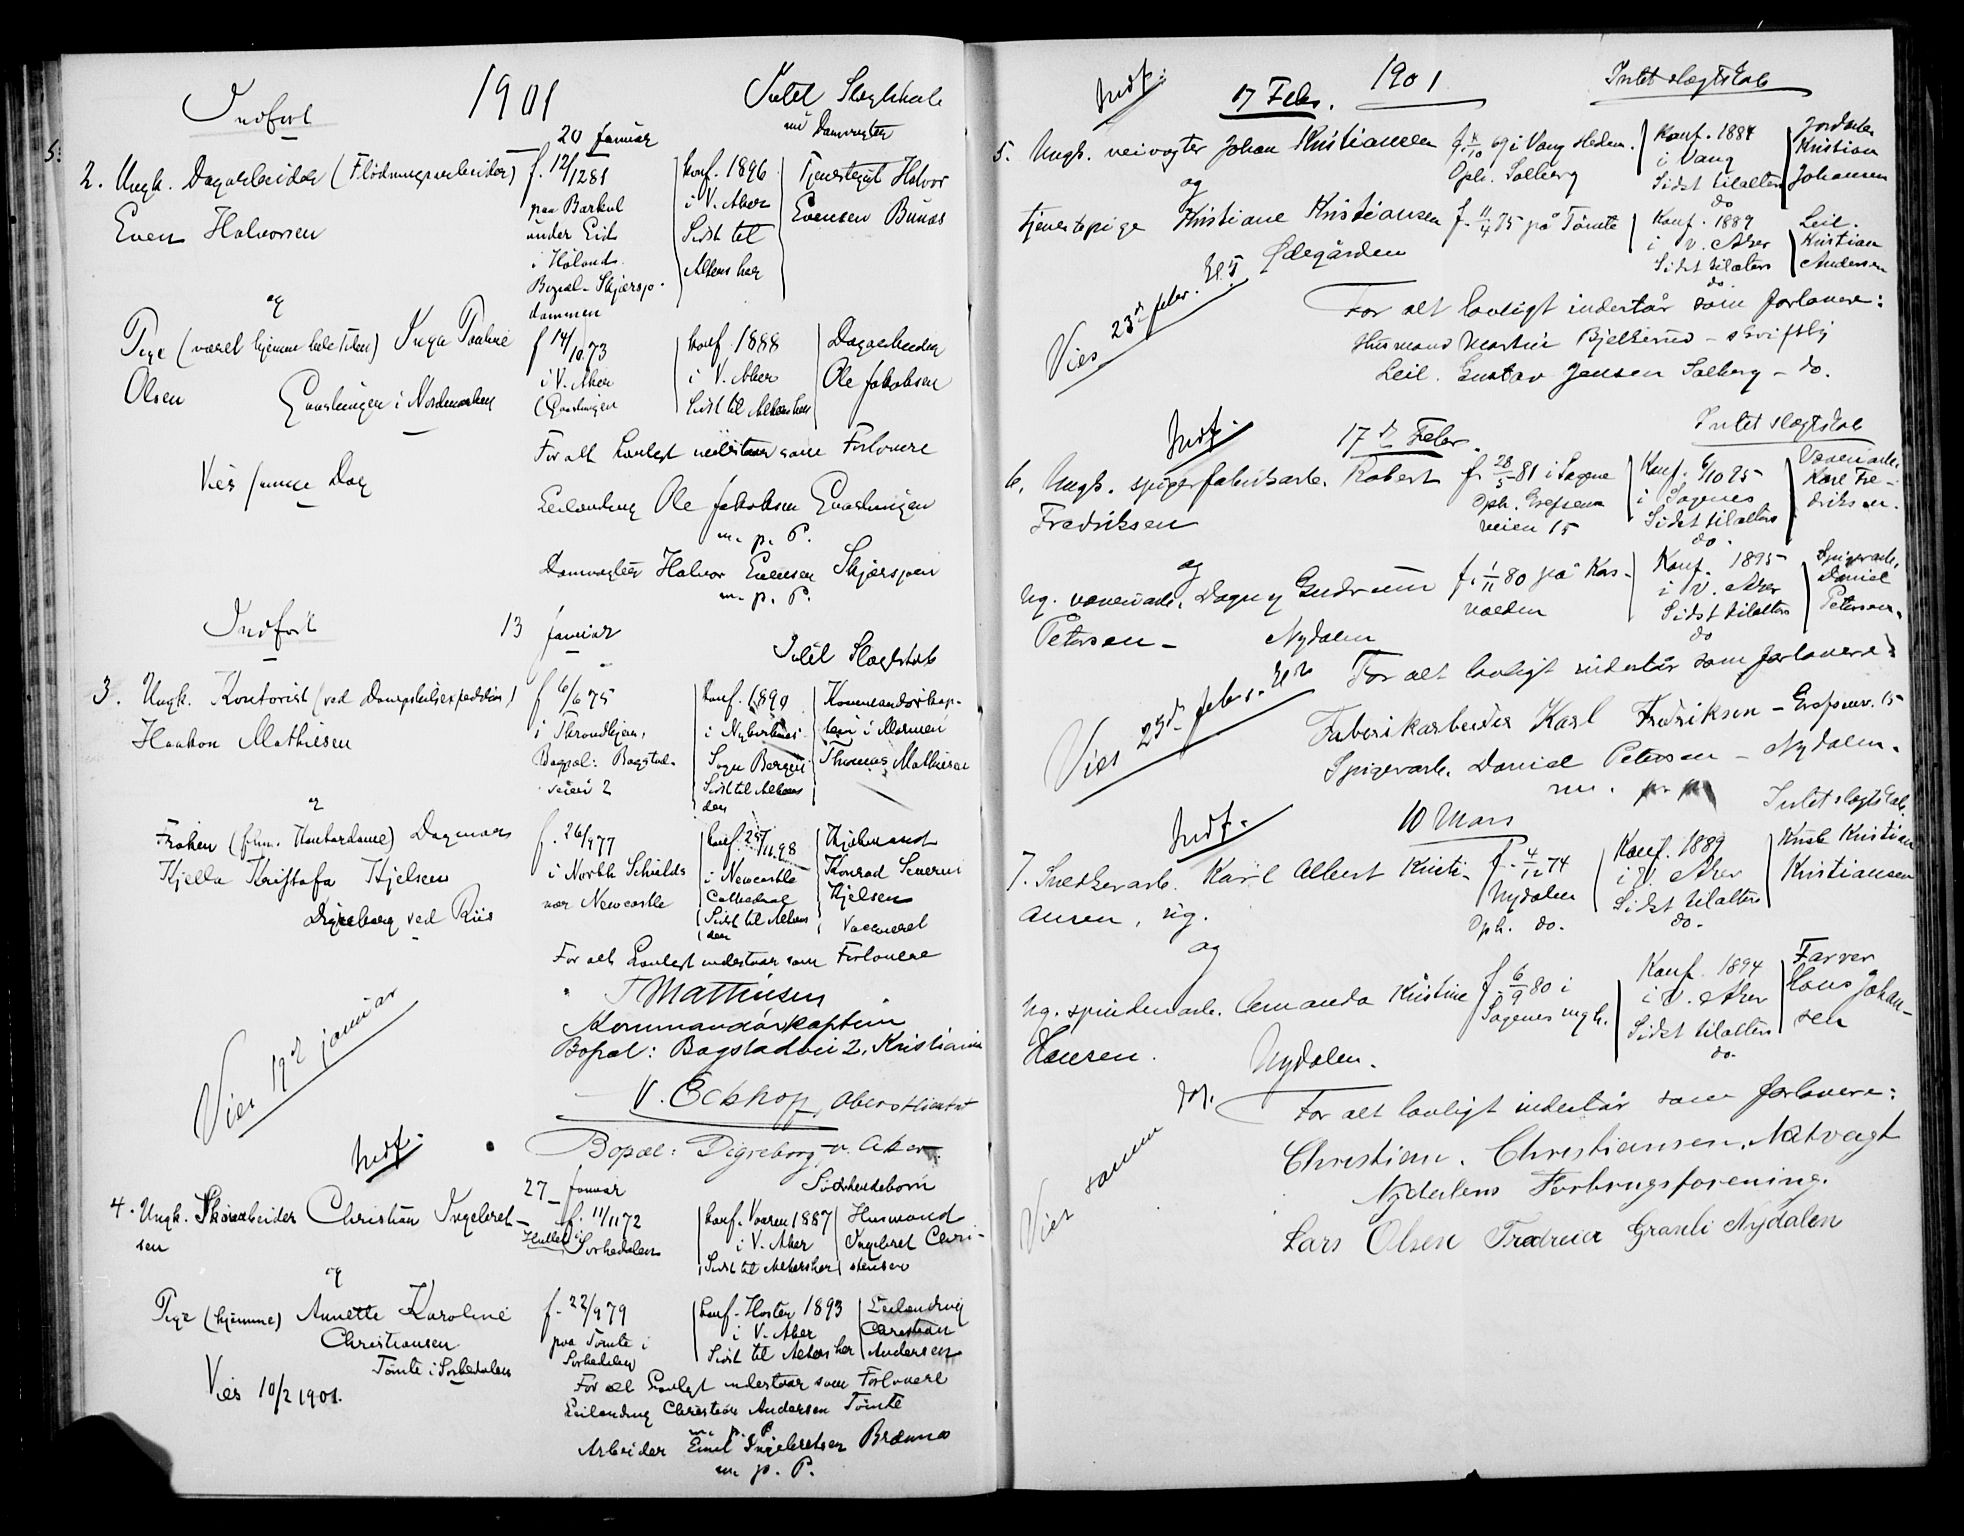 1901
Indført
Intet Slægtskab
20 Januar
2. Ungk. Dagarbeider (Flødningsarbeider)
Even Halvorsen
f. 12/1281
paa
under Eid
i Hølands
Bopæl - Skjærsjø-
dammen
Konf. 1896
i V. Aker
Sidst til
Alters her
Halvor
Evensen
og
Pige (været hjemme hele tiden) Inga Pauline
Olsen
i Nordmarken
f 14/10 73
i V. Aker
Konf. 1888
i V. Aker
Sidst til Alters her
Dagarbeider
Ole Jakobsen
Vies samme Dag
For alt Lovligt indestaar som Forlovere
Leilænding Ole Jakobsen
m. p. P.
Damvogter Halvor Evensen Skjærsjøen
m. p. P.
Indført
13 Januar
Intet Slægtskab
3. Ungk. Kontorist (ved Dampskibsexpedition)
Haakon Mathiesen
f 6/6 75
i Throndhjem,
Bopæl: Bogstad-
veien 2
Konf. 1890
i Nykirkens
Sogn Bergen
Sidst til Alters
den
Kommandørkap-
tein i Marinen
Thomas Mathiesen
og
Frøken (fhv. Kontordame) Dagmar
Kjella Kristofa Kjelsen
ved Riis
f. 26/9 77
i North Schields
nær Newcastle
Konf. 25/11 98
i Newcastle
Cathedral
Sidst til Alters
den
Konrad Severin
Kjelsen
For alt Lovligt indestaar som Forlovere
T Mathiesen
Kommandørkaptein
Bopæl: Bogstadvei 2, Kristiania
Vies 19d januar
V. Eckhoff, Oberstlieutnt
Bopæl: Digreborg, v. Aker.
Indf.
27 Januar
Sødskendebørn
4. Ungk. Skovarbeider Christian Ingebret-
sen
f. 11/11 72
i
Sørkedalen
Konf. Vaaren 1887
i V. Aker
Sidst til Alters her
Husmand
Ingebret Chri-
stensen
og
Pige (hjemme) Annette Karoline
Christiansen
Tømte i Sørkedalen
f. 22/9 79
paa Tømte i
Sørkedalen
Konf. Høsten 1893
i V. Aker
Sidst til Alters her
Leilænding
Christian
Andersen
Vies 10/2 1901.
For alt Lovligt indestaar som Forlovere
Leilænding Christian Andersen Tømte
m. p. P.
Arbeider Emil Ingebretsen Brænna
m. p. P.
1901
Indf.
17 Febr.
Intet slægtskab
5. Ungk. veivogter Johan Kristiansen
f. 4/10 69 i Vang Hedm.
Oph. Solberg
Konf. 1884
i Vang
Sidst tilalters
do
Jordarb.
Kristian
Johansen
og
tjenestepige Kristiane Kristiansen
Ødegården
f. 11/4 75 på Tømte
Konf. 1889
i V. Aker
Sidst tilalters
do.
Leil.
Kristian
Andersen
Vies 23d febr.
For alt lovligt indestår som forlovere:
Husmand Martin Bjelkerud - skriftlig
Leil. Gustav Jensen Solberg - do.
Indf.
17d Febr.
Intet slægtskab
6. Ungk. spigerfabrikarb. Robert
Fredriksen
f. 28/5 81 i Sagene
Oph. Grefsen
veien 15
Konf. 6/10 95
i Sagenes
Sidst tilalters
do.
Karl Fre-
driksen.
og
Ug. væveriarb. Dagny Gudrun
Petersen - Nydalen
f. 1/11 80 på Kos-
Konf. 1895
i V. Aker
Sidst tilalters
do
Spigerarb.
Daniel
Petersen.
Vies 23d febr.
For alt lovligt indestår som forlovere:
Fabrikarbeider Karl Fredriksen - Grefsenv. 15
Spigerarb. Daniel Petersen - Nydalen.
Indf.
10 Mars
Intet slægtskab
7. Snedkerarb. Karl Albert Kristi-
ansen, ug.
f. 4/12 74
Nydalen
Oph. do.
Konf. 1889
i V. Aker
Sidst tilalters
do.
Kusk Kristian
Kristiansen
og
Ug. spinderiarb. Amanda Kristine
Hansen. Nydalen.
f. 6/9 80 i
Sagenes mgh.
Konf. 1894
i V. Aker
Sidst tilalters
do.
Farver
Hans Johan-
sen
Vies samme
For alt lovligt indestår som forlovere:
Christian. Christiansen. Natvagt
Nydalens Forbrugsforening.
Lars Olsen Granli Nydalen